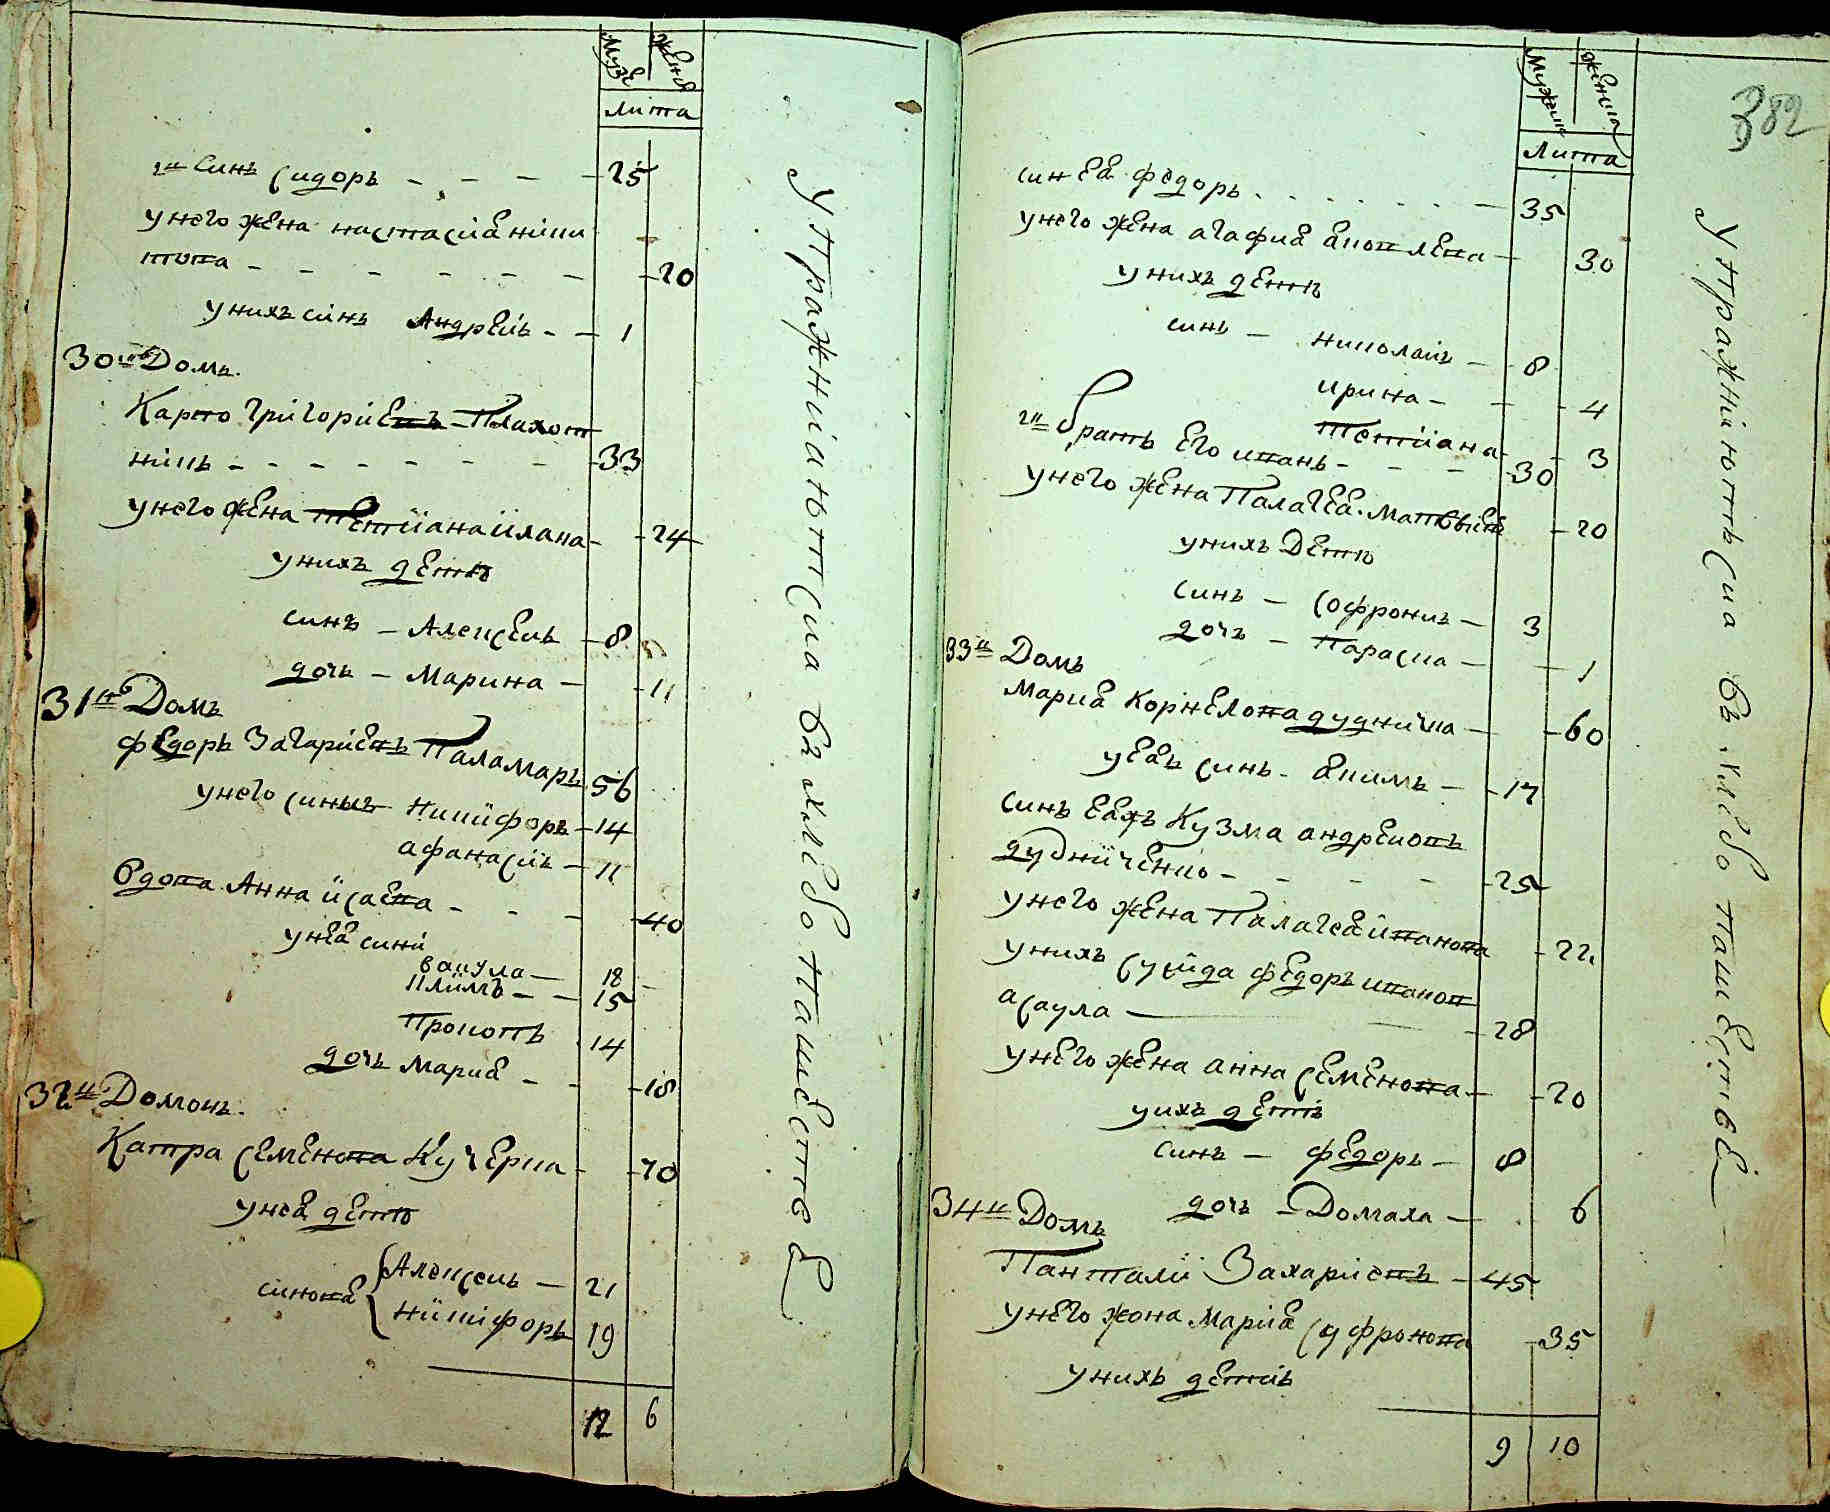 Музе жена
лита
2и синъ Сидоръ - - - - 25
у него жена настасиа ники
това - - - - - - 20
у нихъ синъ Андрей - - 1
30й Домъ.
Карпо Григориевъ Плахот
никъ - - - - - - - 33
у него жена Тетiана iлана - 24
у нихъ дети
синъ - Алексей - 8
дочь - Марина - 11
31й Домъ
Федоръ Захариевъ Паламаръ 56
у него синъ Никифоръ - 14
афанасiй - 11
Вдова Анна iсаева - - - 40
у неа сини
вакула - 18
Клiмъ - - 15
Прокопъ 14
дочь Мариа - - 18
32й Домовъ.
Катра Семенова Кучерка - 70
у неа дети
синова Алексей - 21
никiфоръ 19
12 6
Упражнiаютсиа въ хлебопашестве
382
Мужеска женска
Лита
син еа Федоръ . . . . . . - 35
у него жена агафиа аковлева - 30
у нихъ дети
синъ - николай - 8
ирина - - - 4
Тетiана - - 3
2й братъ его иванъ - - - - 30
у него жена Палагеа Матвыева - 20
у нихъ Дети
синъ - Софронъ - 3
дочь - Параска - - 1
33й Домъ
Мариа Корнелова дудничка - - 60
у еаи синъ - акимъ - - 17
синъ еахъ Кузма андреновъ
дудниченко - - - - - 25
у него жена Палагеа iванова - 22
у нихъ Сусида Федоръ иванов
асаула - - 28
у него жена анна Семенова - - 20
у ихъ дети
синъ - Федоръ - 8
дочь - Домаха - . 6
34й Домъ
Панталii Захариевъ - 45
у него жона Мариа Суфронова - 35
у нихъ детiй
9 10
Упражнiютьсиа въ хлебопашестве